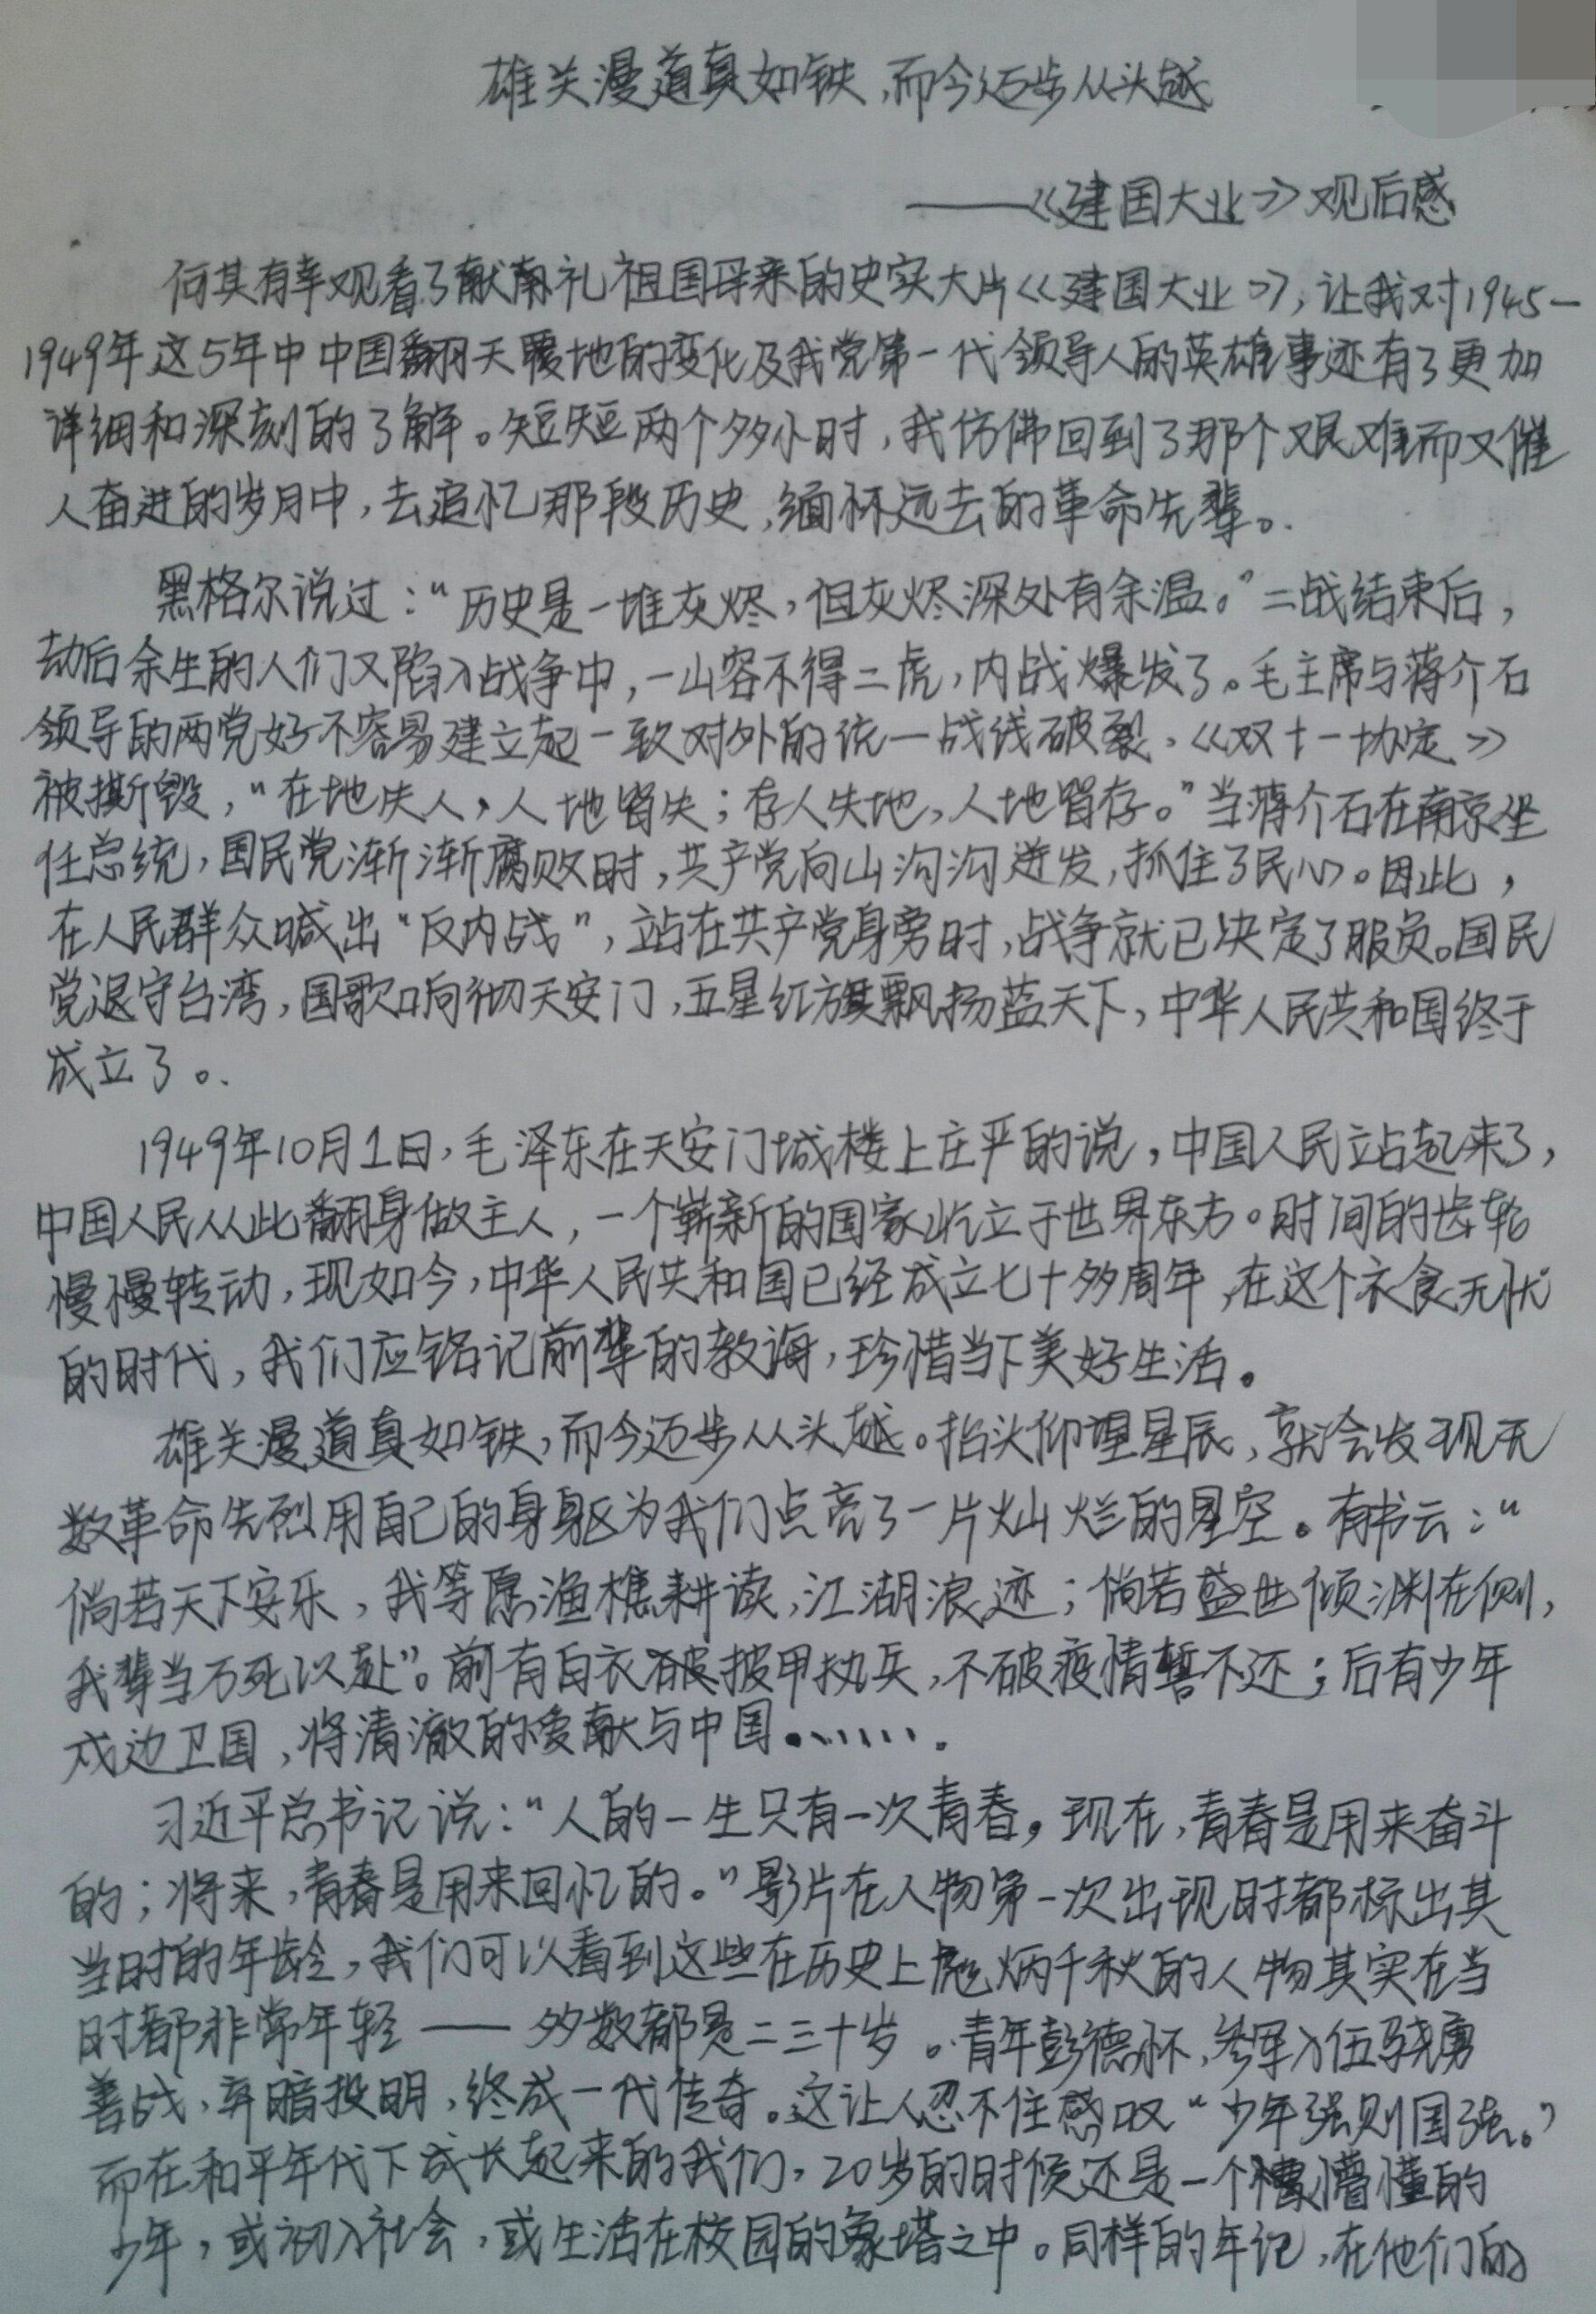 雄关漫道真如铁,而今迈步从头越
——《建国大业》观后感
何其有幸观看了献礼祖国母亲的史实大片《建国大业》,让我对1945—
1949年这5年中中国翻天覆地的变化及我党第一代领导人的英雄事迹有了更加
详细和深刻的了解。短短两个多小时,我仿佛回到了那个艰难而又催
人奋进的岁月中,去追忆那段历史,缅怀远去的革命先辈。
黑格尔说过:“历史是一堆灰烬,但灰烬深处有余温。”二战结束后,
劫后余生的人们又陷入战争中,一山容不得二虎,内战爆发了。毛主席与蒋介石
领导的两党好不容易建立起一致对外的统一战线破裂,《双十一协定》
被撕毁,“在地失人,人地皆失;存人失地,人地皆存。”当蒋介石在南京坐
任总统,国民党渐渐腐败时,共产党向山沟沟进发,抓住了民心。因此,
在人民群众喊出“反内战”,站在共产党身旁时,战争就已决定了服负。国民
党退守台湾,国歌响彻天安门,五星红旗飘扬蓝天下,中华人民共和国终于
成立了。
1949年10月1日,毛泽东在天安门城楼上庄严的说,中国人民站起来了,
中国人民从此翻身做主人,一个崭新的国家屹立于世界东方。时间的齿轮
慢慢转动,现如今,中华人民共和国已经成立七十多周年,在这个衣食无忧
的时代,我们应铭记前辈的教诲,珍惜当下美好生活。
雄关漫道真如铁,而今迈步从头越。抬头仰望星辰,就会发现无
数革命先烈用自己的身躯为我们点亮了一片灿烂的星空。有书云:“
倘若天下安乐,我等愿渔樵耕读,江湖浪迹;倘若盛世倾渊在侧,
我辈当万死以赴”。前有白衣披甲执兵,不破疫情誓不还;后有少年
戍边卫国,将清澈的爱献与中国.......
习近平总书记说:“人的一生只有一次青春,现在,青春是用来奋斗
的;将来,青春是用来回忆的。”影片在人物第一次出现时都标出其
当时的年龄,我们可以看到这些在历史上彪炳千秋的人物其实在当
时都非常年轻——多数都是二三十岁。青年彭德怀,参军入伍骁勇
善战,弃暗投明,终成一代传奇。这让人忍不住感叹“少年强则国强。”
而在和平年代下成长起来的我们,20岁的时候还是一个懵懂的
少年,或初入社会,或生活在校园的象塔之中。同样的年记,在他们的